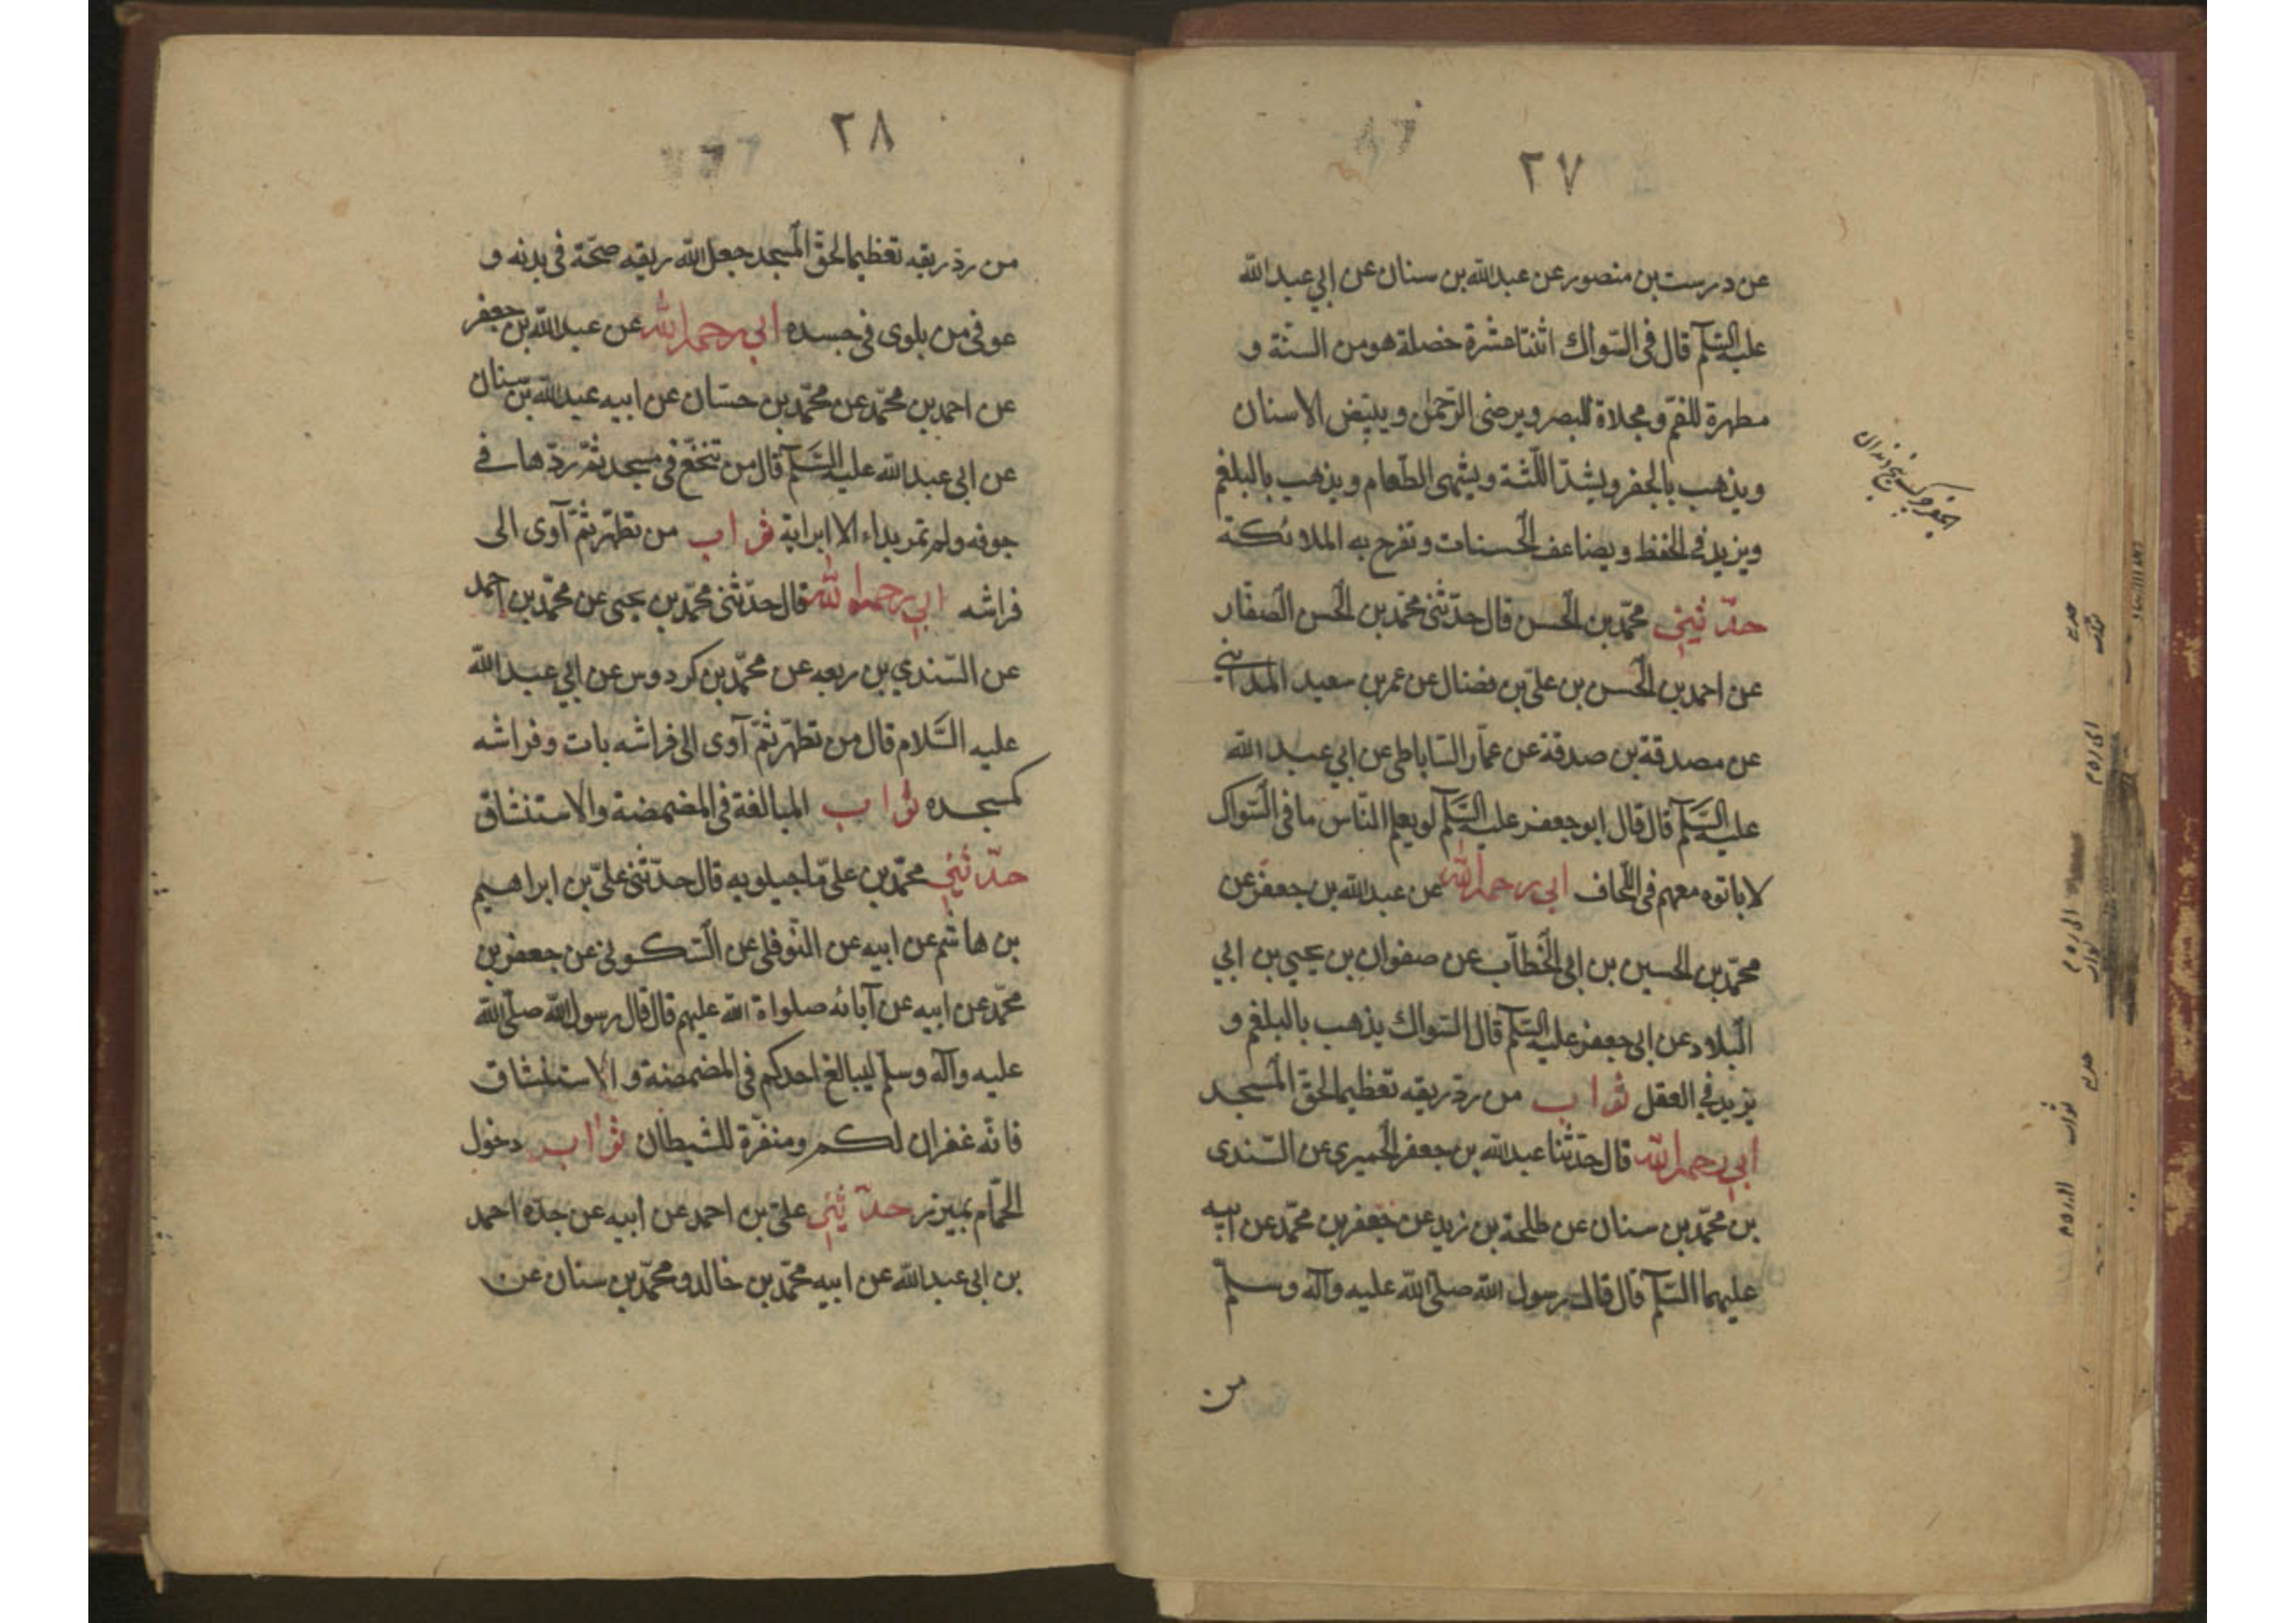 ٢٧
عن درست بن منصور عن عبد الله بن سنان عن ابي عبد الله
عليه السّلم قال فى السّواك اثنتا عشرة خصلة هو من السنّة و
مطهرة للفم و مجلاة للبصر و يرضى الرّحمن و يبيّض الاسنان
و يذهب بالحفر و يشدّ اللّثة و يشهى الطّعام و يذهب بالبلغم
و يزيد فى الحفظ و يضاعف الحسنات و تفرح به الملائكة
حدّثنِي محمّد بن الحسن قال حدّثنى محمّد بن الحسن الصفّار
عن احمد بن الحسن بن علىّ بن فضال عن عمر بن سعيد المدائني
عن مصدقة بن صدقة عن عمّار السّاباطى عن ابي عبد الله
عليه السّلم قال قال ابو جعفر عليه السّلم لو يعلم النّاس ما فى السّواك
لاباتوه معهم فى اللّحاف ابي رحمه الله عن عبد الله بن جعفر عن
محمّد بن الحسين بن ابى الخطّاب عن صفوان بن يحيي بن ابي
البلاد عن ابى جعفر عليه السّلم قال السّواك يذهب بالبلغم و
يزيد في العقل ثواب من ردّ ريقه تعظيما لحقّ المسجد
ابي رحمه الله قال حدّثنا عبد الله بن جعفر الحميرى عن السّندى
بن محمّد بن سنان عن طلحة بن زيد عن جعفر بن محمّد عن ابيه
عليهما السّلم قال قال رسول الله صلّى الله عليه وآله وسلّم
من
٢٨
من ردّ ريقه تعظيما لحقّ المسجد جعل الله ريقه صحّة فى بدنه و
عوفى من بلوى فى جسده ابي رحمه الله عن عبد الله بن جعفر
عن احمد بن محمّد عن محمّد بن حسّان عن ابيه عبد الله بن سنان
عن ابى عبد الله عليه السّلم قال من تنخّع فى مسجد ثمّ ردّها فى
جوفه ولم تمر بداء الا ابراته ثواب من تطهّر ثمّ آوى الى
فراشه ابي رحمه الله قال حدّثنى محمّد بن يحيى عن محمّد بن احمد
عن السّندي بن ربعه عن محمّد بن كردوس عن ابي عبد الله
عليه السّلام قال من تطهّر ثمّ آوى الى فراشه بات و فراشه
كمسجده ثواب المبالغة فى المضمضة والاستنشاق
حدّثنِي محمّد بن علىّ ماجيلويه قال حدّثنى علىّ بن ابراهيم
بن هاشم عن ابيه عن النّوفلى عن السّكونى عن جعفر بن
محمّد عن ابيه عن آبائه صلواة الله عليهم قال قال رسول الله صلّى الله
عليه وآله وسلّم ليبالغ احدكم فى المضمضة و الاستنشاق
فانّه غفران لكم و منفرة للشيطان ثواب دخول
الحمّام بميزر حدّثنِي علىّ بن احمد عن ابيه عن جدّه احمد
بن ابى عبد الله عن ابيه محمّد بن خالد و محمّد بن سنان عن